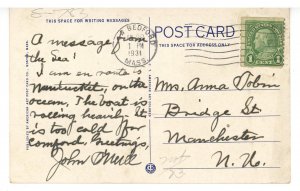 THIS SPACE FOR WRITING MESSAGES
POST CARD
THIS SPACE FOR ADDRESS ONLY
BEDFORD
1 PM
1931
MASS.
1 CENT 1
A message from
the sea!
I am en route to
Nantucket, on the
ocean. The boat is
rolling heavily. It
is too cold for
comfort, Greetings,
John O'Neill
Mrs. Anna Tobin
Bridge St.
Manchester
N. H.